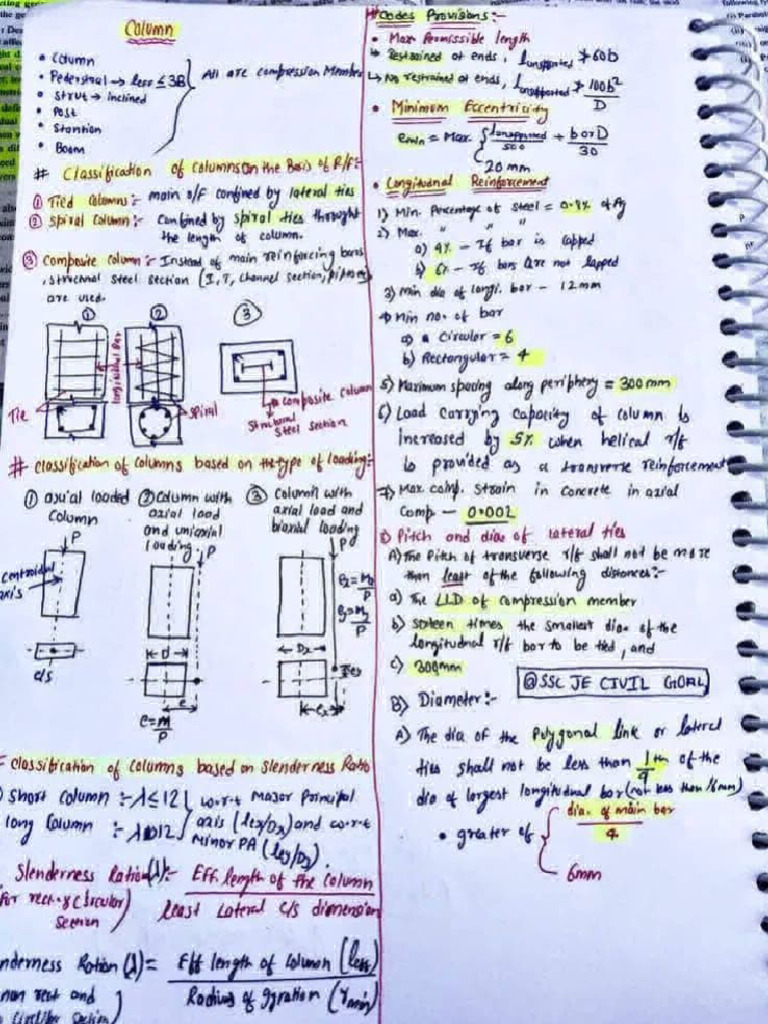 Column
• Column
• Pedenstral → less ≤ 3B
• Strut → inclined
• Post
• Stantion
• Boom
All are compression Member
# Classification of Columns on the Basis of R/F:-
① Tied Columns:- main r/f confined by lateral ties
② Spiral Column:- Confined by spiral ties throught
the length of column.
③ Composite column:- Instead of main reinforcing bars
, structural steel section (I, T, channel section, pipe)
are used.
① ② ③
longitudinal Bar
Tie
spiral
composite column
Structural
Steel section
# Classification of columns based on the type of loading:-
① axial loaded
Column
② Column with
axial load
and uniaxial
loading
③ Column with
axial load and
biaxial loading
P
P
P
centroidal
axis
c/s
D
e
e = M/P
Dx
ex
# Classification of columns based on Slenderness Ratio
short column :- λ ≤ 12
long Column :- λ > 12
w.r.t Major Principal
axis (lex/Dx) and w.r.t
Minor PA (ley/Dy).
Slenderness Ratio(λ):- Eff. length of the column / least Lateral c/s dimension
for rect. & Circular
section
nderness Ration (λ) = Eff length of column (leff) / Radius of gyration (rmin)
non rect and
Circular section
# Codes Provisions:-
• Max Permissible length
↳ Restrained at ends, lunsupported ≯ 60D
↳ No restrained at ends, lunsupported ≯ 100b²/D
• Minimum Eccentricity
emin = Max. { lunsupported/500 + b or D/30
20 mm
• Longitudnal Reinforcement
1) Min. Percentage of Steel = 0.8% of Ag
2) Max. " " "
a) 4% - If bar is lapped
b) 6% - If bars are not lapped
3) Min dia of longi. bar - 12mm
4) Min no. of bar
a) a Circular = 6
b) Rectangular = 4
5) Maximum spacing along periphery = 300mm
6) Load Carrying Capacity of column is
increased by 5% when helical r/f
is provided as a transverse reinforcement
7) Max comp. Strain in concrete in axial
Comp - 0.002
8) Pitch and dias of lateral ties
A) The Pitch of transverse r/f shall not be more
than least of the following distances:-
a) The LLD of compression member
b) sixteen times the smallest dia. of the
longitudnal r/f bar to be tied, and
c) 300mm
@SSC JE CIVIL GOAL
B) Diameter:-
A) The dia of the Polygonal link or lateral
ties shall not be less than 1/4 th of the
dia of largest longitudnal bar (not less than 16mm)
• greater of { dia. of main bar / 4
6mm